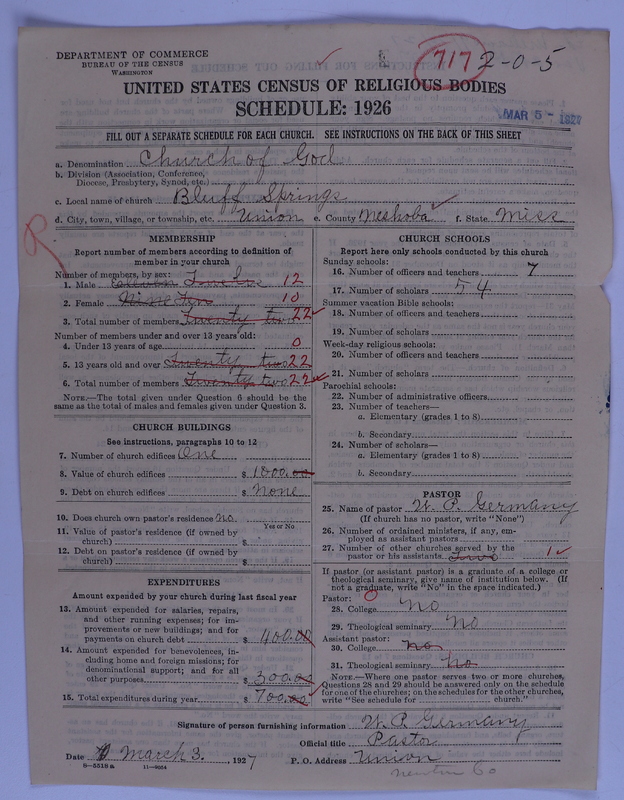 DEPARTMENT OF COMMERCE
BUREAU OF THE CENSUS
WASHINGTON
717 2-0-5
UNITED STATES CENSUS OF RELIGIOUS BODIES
SCHEDULE: 1926
MAR 5 - 1927
FILL OUT A SEPARATE SCHEDULE FOR EACH CHURCH. SEE INSTRUCTIONS ON THE BACK OF THIS SHEET
a. Denomination Church of God
b. Division (Association, Conference,
Diocese, Presbytery, Synod, etc.)
c. Local name of church Bluff Springs
d. City, town, village, or township, etc. Union e. County Neshoba f. State Miss
R
MEMBERSHIP
Report number of members according to definition of
member in your church
Number of members, by sex:
1. Male Twelve 12
2. Female Nine Ten 10
3. Total number of members Twenty two 22
Number of members under and over 13 years old:
4. Under 13 years of age 0
5. 13 years old and over Twenty two 22
6. Total number of members Twenty two 22
NOTE.—The total given under Question 6 should be the
same as the total of males and females given under Question 3.
CHURCH BUILDINGS
See instructions, paragraphs 10 to 12
7. Number of church edifices One
8. Value of church edifices $ 1000.00
9. Debt on church edifices $ None
10. Does church own pastor's residence No.
Yes or No
11. Value of pastor's residence (if owned by
church) $
12. Debt on pastor's residence (if owned by
church) $
EXPENDITURES
Amount expended by your church during last fiscal year
13. Amount expended for salaries, repairs,
and other running expenses; for im-
provements or new buildings; and for
payments on church debt $ 400.00
14. Amount expended for benevolences, in-
cluding home and foreign missions; for
denominational support; and for all
other purposes $ 300.00
15. Total expenditures during year $ 700.00
CHURCH SCHOOLS
Report here only schools conducted by this church
Sunday schools:
16. Number of officers and teachers 7
17. Number of scholars 54
Summer vacation Bible schools:
18. Number of officers and teachers
19. Number of scholars
Week-day religious schools:
20. Number of officers and teachers
21. Number of scholars
Parochial schools:
22. Number of administrative officers
23. Number of teachers—
a. Elementary (grades 1 to 8)
b. Secondary
24. Number of scholars—
a. Elementary (grades 1 to 8)
b. Secondary
PASTOR
25. Name of pastor W. P. Germany
(If church has no pastor, write "None")
26. Number of ordained ministers, if any, em-
ployed as assistant pastors
27. Number of other churches served by the
pastor or his assistants Two 1
If pastor (or assistant pastor) is a graduate of a college or
theological seminary, give name of institution below. (If
not a graduate, write "No" in the space indicated.)
Pastor: 0
28. College No
29. Theological seminary No
Assistant pastor:
30. College No
31. Theological seminary No
NOTE.—Where one pastor serves two or more churches,
Questions 28 and 29 should be answered only on the schedule
for one of the churches; on the schedules for the other churches,
write "See schedule for church."
Signature of person furnishing information W. P. Germany
Official title Pastor
Date March 3. , 1927 P. O. Address Union
8—5518 a 11—9054
Newton Co